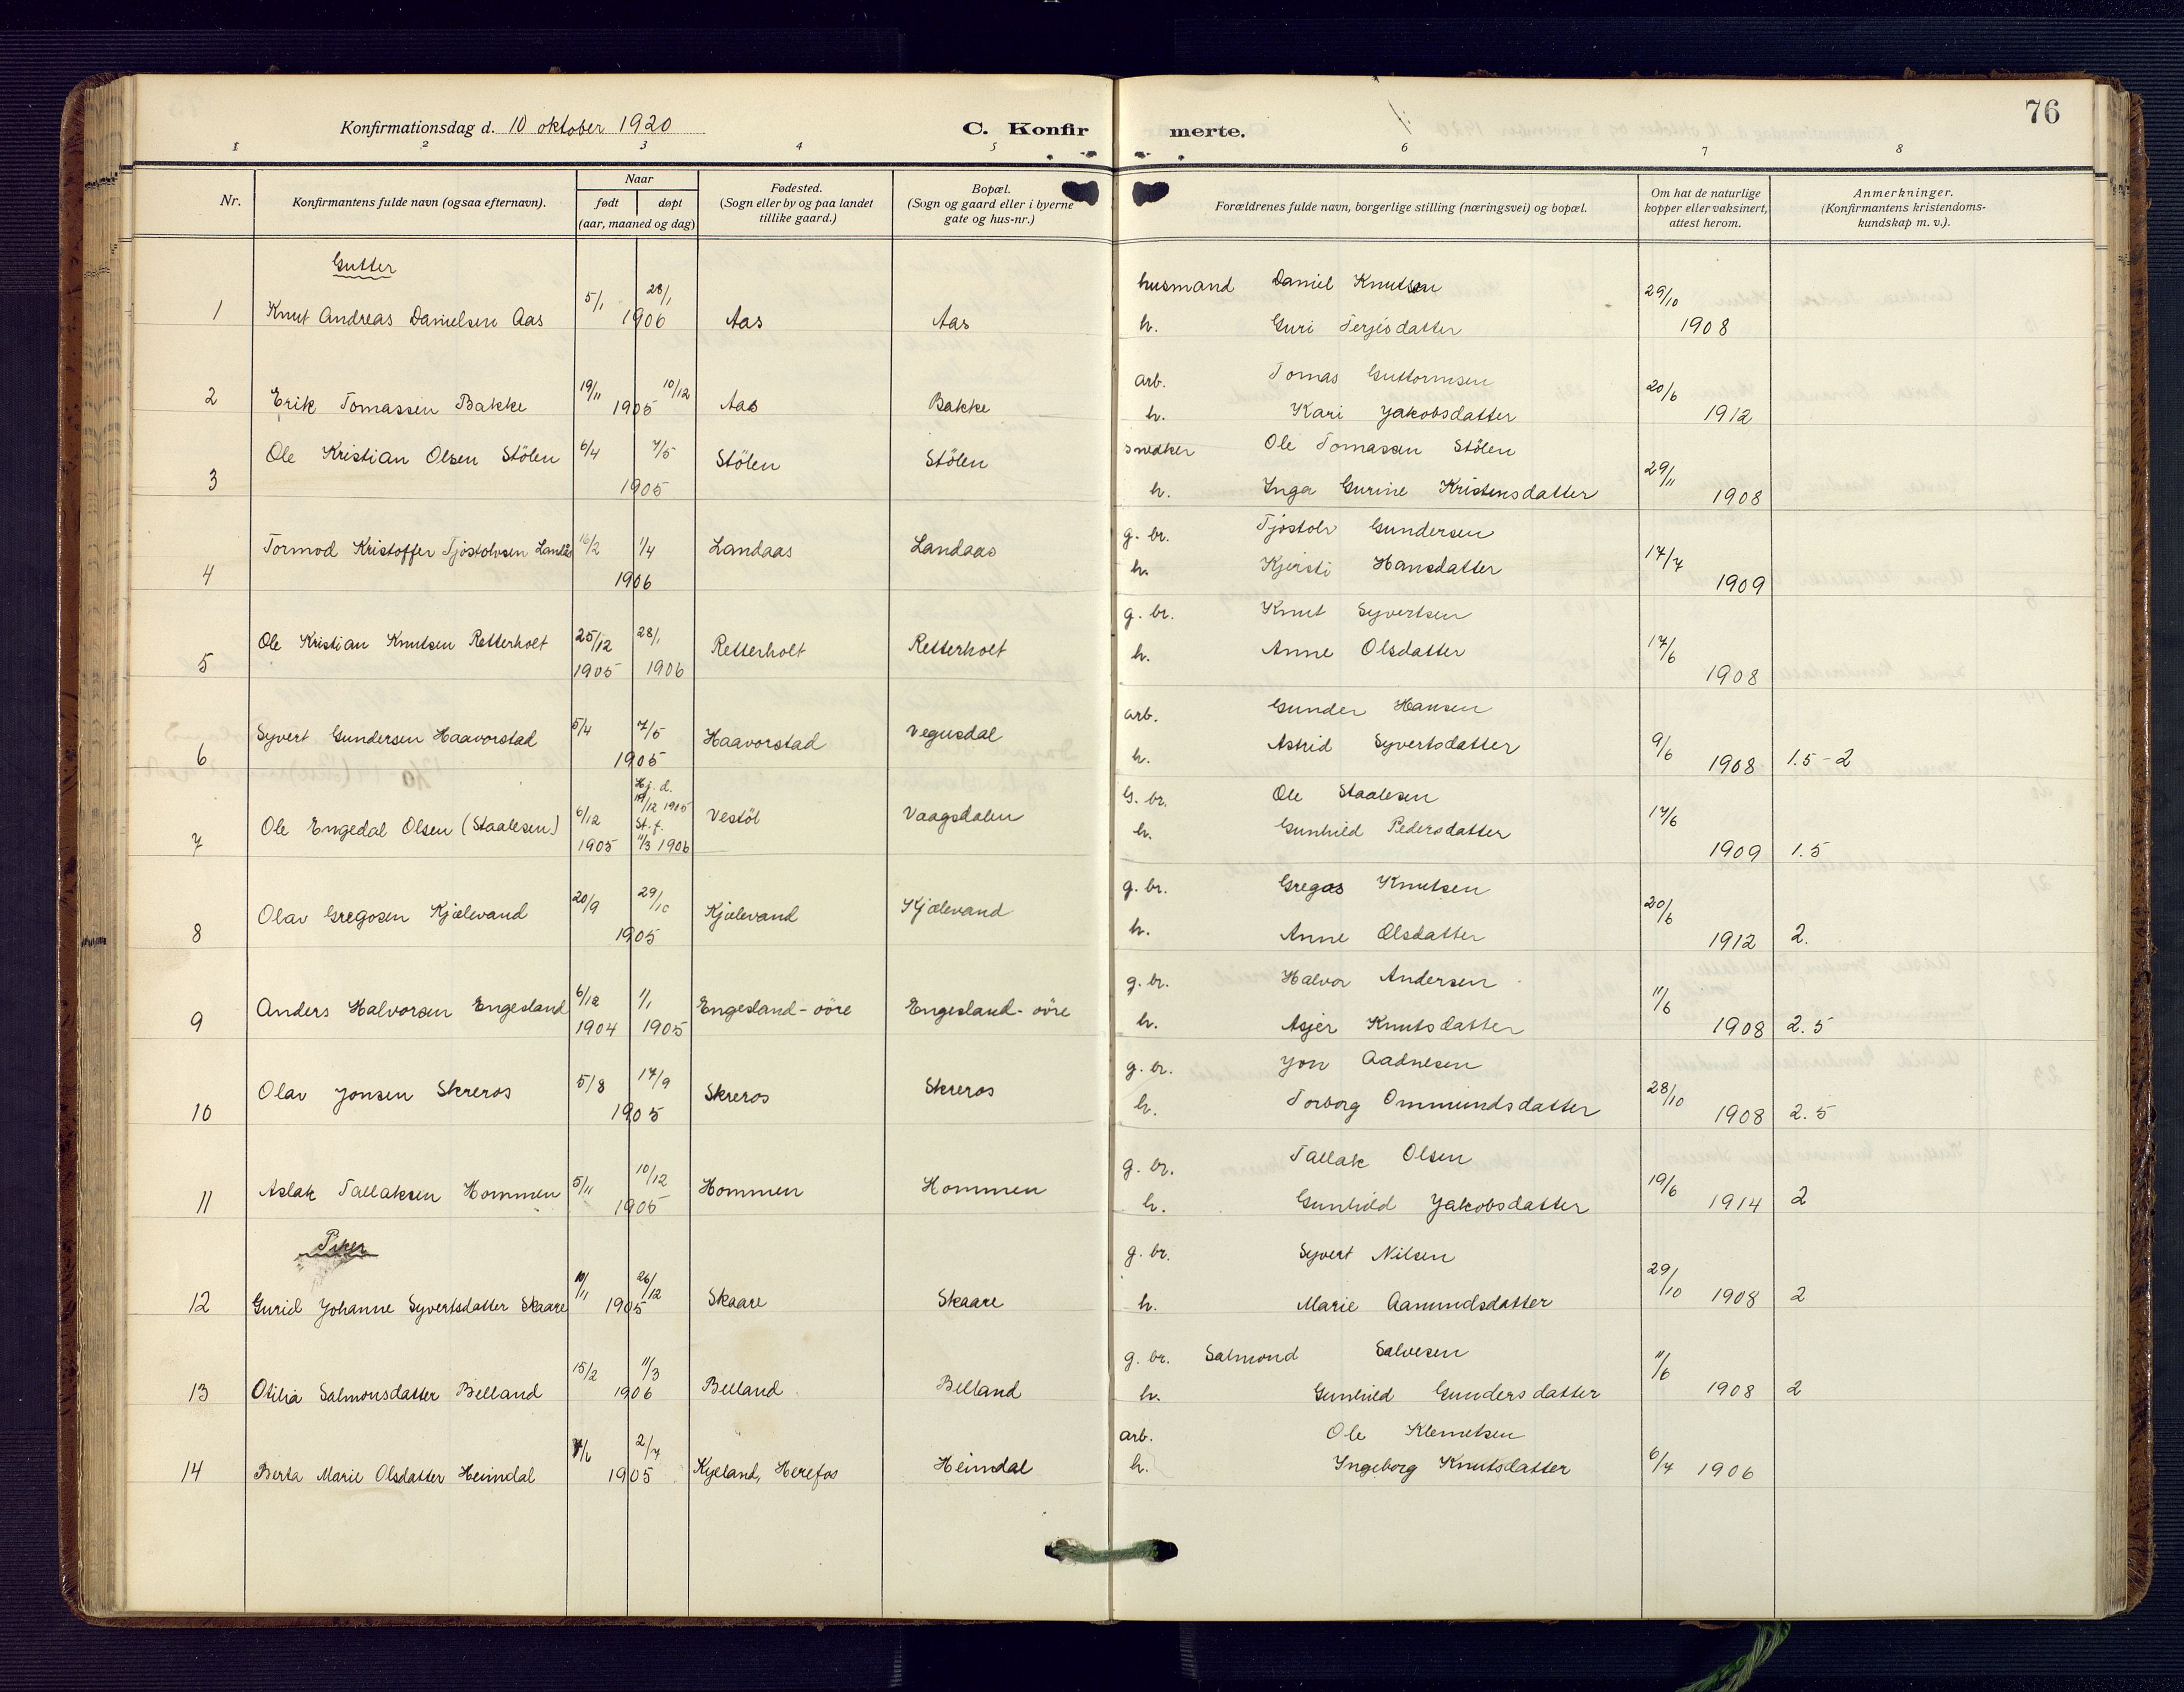 76
Konfirmationsdag d. 10 oktober 1920
C. Konfirmerte.
1 2 3 4 5 6 7 8
Nr.
Konfirmantens fulde navn (ogsaa efternavn).
Naar
født døpt
(aar, maaned og dag)
Fødested.
(Sogn eller by og paa landet
tillike gaard.)
Bopæl.
(Sogn og gaard eller i byerne
gate og hus-nr.)
Forældrenes fulde navn, borgerlige stilling (næringsvei) og bopæl.
Om hat de naturlige
kopper eller vaksinert,
attest herom.
Anmerkninger.
(Konfirmantens kristendoms-
kundskap m. v.).
Gutter
husmand Daniel Knutsen
1 Knut Andreas Danielsen Aas 5/1 28/1 1906 Aas Aas 29/10 1908
h. Guri Terjesdatter
arb. Tomas Guttormsen
2 Erik Tomassen Bakke 19/11 10/12 1905 Aas Bakke 20/6 1912
h. Kari Jakobsdatter
snedker Ole Tomassen Stölen
3 Ole Kristian Olsen Stölen 6/4 7/5 1905 Stölen Stölen 29/11 1908
h. Inga Gurine Kristensdatter
g. br. Tjöstolv Gundersen
4 Tormod Kristoffer Tjöstolvsen Landås 16/2 1/4 1906 Landaas Landaas 17/7 1909
h. Kjersti Hansdatter
g. br. Knut Syvertsen
5 Ole Kristian Knutsen Retterholt 25/12 1905 28/1 1906 Retterholt Retterholt 17/6 1908
h. Anne Olsdatter
arb. Gunder Hansen
6 Syvert Gundersen Haavorstad 5/4 7/5 1905 Haavorstad Vegusdal 9/6 1908 1.5-2
h. Astrid Syvertsdatter
G. br. Ole Staalesen
7 Ole Engedal Olsen (Staalesen) 6/12 1905 Hj. d. /12 1905 St. f. 11/3 1906 Vestöl Vaagsdalen 17/6 1909 1.5
h. Gunhild Pedersdatter
g. br. Gregas Knutsen
8 Olav Gregosen Kjælevand 20/9 29/10 1905 Kjælevand Kjælevand 20/6 1912 2.
h. Anne Olsdatter
g. br. Halvor Andersen
9 Anders Halvorsen Engesland 6/12 1904 1/1 1905 Engesland-övre Engesland-övre 11/6 1908 2.5
h. Asjer Knutsdatter
g. br. Jon Aadnesen
10 Olav Jonsen Skreros 5/8 17/9 1905 Skreros Skreros 28/10 1908 2.5
h. Torborg Ommundsdatter
g. br. Tallak Olsen
11 Aslak Tallaksen Hommen 5/11 10/12 1905 Hommen Hommen 19/6 1914 2
h. Gunhild Jakobsdatter
Piker
g. br. Syvert Nilsen
12 Guriel Johanne Syvertsdatter Skaare /11 26/12 1905 Skaare Skaare 29/10 1908 2
h. Marie Aamundsdatter
g. br. Salmond Salvesen
13 Otilia Salmonsdatter Belland 15/2 11/3 1906 Belland Belland 11/6 1908 2
h. Gunhild Gundersdatter
arb. Ole Klemetsen
14 Berta Marie Olsdatter Heimdal 2/7 1905 Kyland, Herefos Heimdal 6/7 1906
h. Ingeborg Knutsdatter